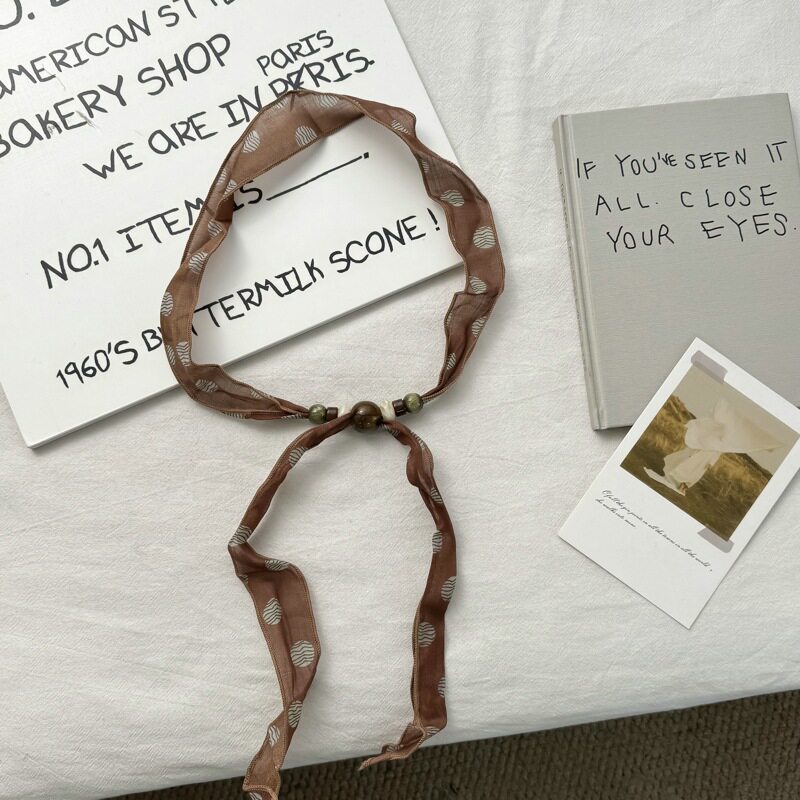 AMERICAN STYLE
BAKERY SHOP
PARIS
WE ARE IN PERIS.
NO.1 ITEM IS______.
1960'S BUTTERMILK SCONE!
IF YOU'VE SEEN IT
ALL. CLOSE
YOUR EYES.
in all the world,